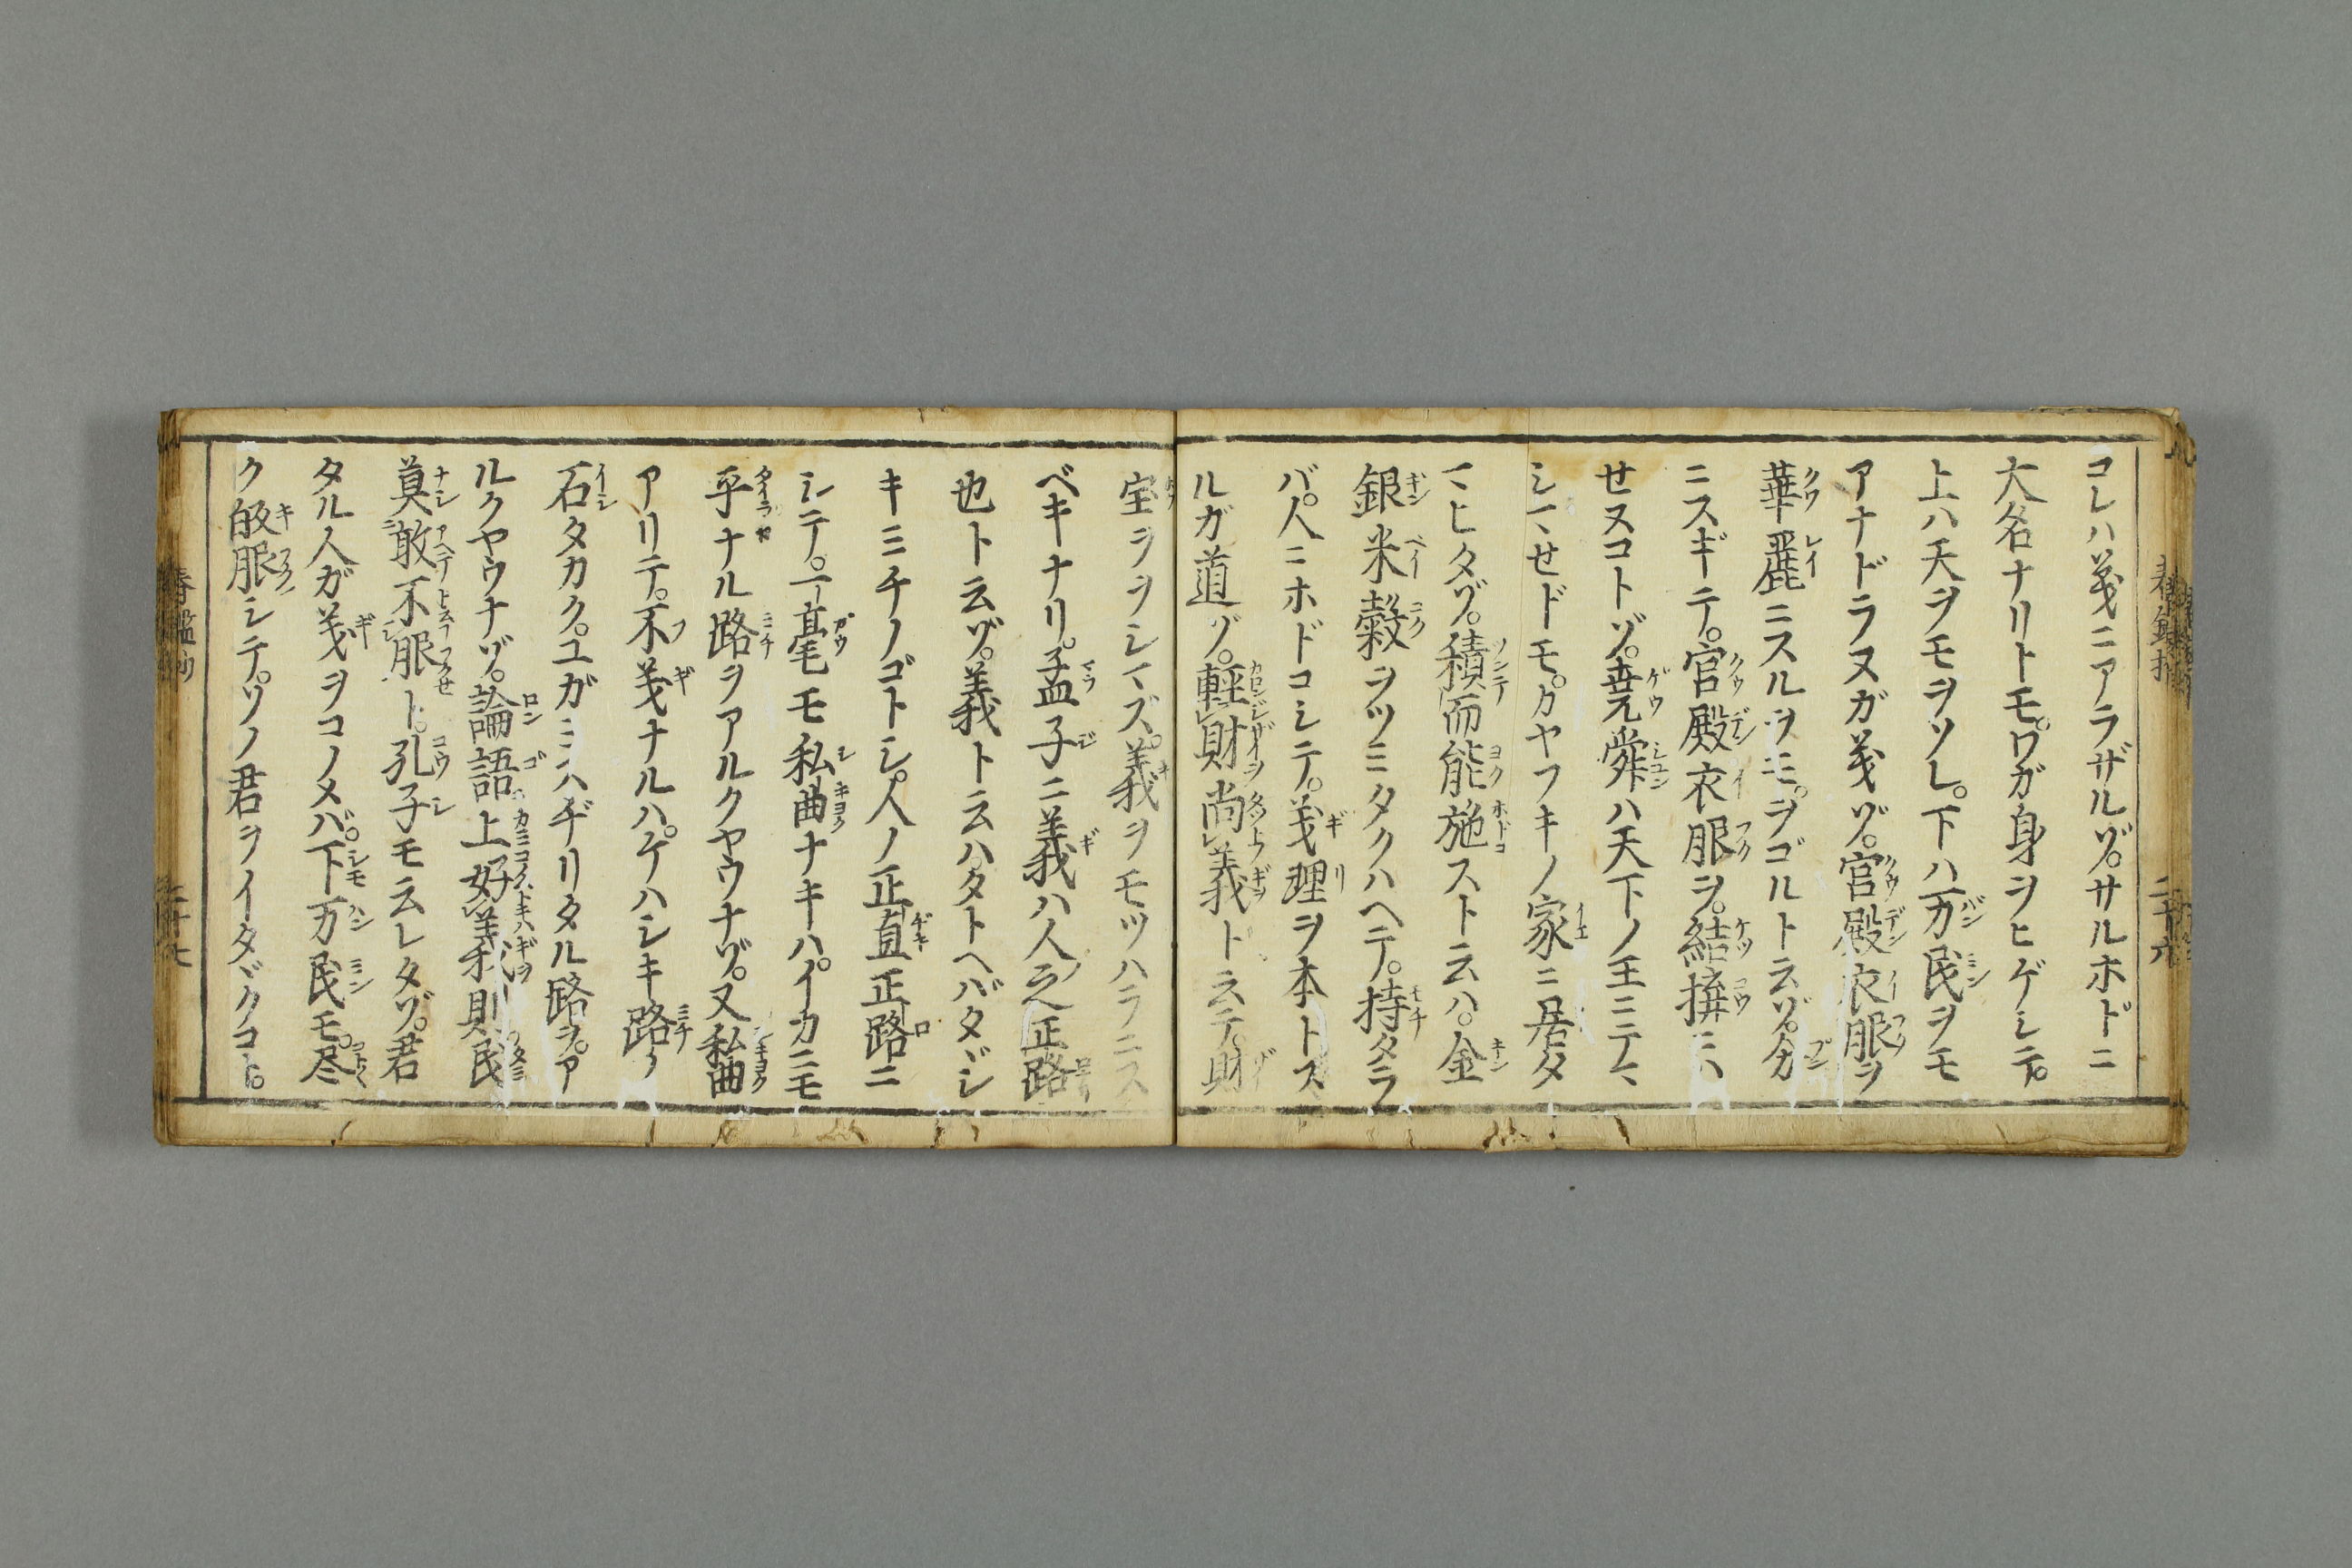 コレハ義ニアラザルゾ。サルホドニ
大名ナリトモ。ワガ身ヲヒゲシテ。
上ハ天ヲモヲソレ。下ハ万民ヲモ
アナドラヌガ義ゾ。宮殿衣服ヲ
華麗ニスルヲミ。ヲゴルト云ゾ。分
ニスギテ。宮殿衣服ヲ。結搆ニハ
せヌコトゾ。堯舜ハ天下ノ王ニテマ
シマせドモ。カヤフキノ家ニ居タ
マヒタゾ。積而能施スト云ハ。金
銀米穀ヲツミタクハヘテ。持タラ
バ。人ニホドコシテ。義理ヲ本トス
ルガ道ゾ。軽財尚義ト云テ。財
宝ヲヲシマズ。義ヲモツハラニス
ベキナリ。孟子ニ義ハ人之正路
也ト云ゾ。義ト云ハ。タトヘバタヾシ
キミチノゴトシ。人ノ正直正路ニ
シテ。一毫モ私曲ナキハ。イカニモ
平ナル路ヲアルクヤウナゾ。又私曲
アリテ。不義ナルハ。ケハシキ路ノ
石タカク。ユガミハヂリタル路ヲ。ア
ルクヤウナゾ。論語上好義則民
莫敢不服ト。孔子モ云レタゾ。君
タル人ガ義ヲコノメバ。下万民モ。尽
ク皈服シテ。ソノ君ヲイタヾクコト。